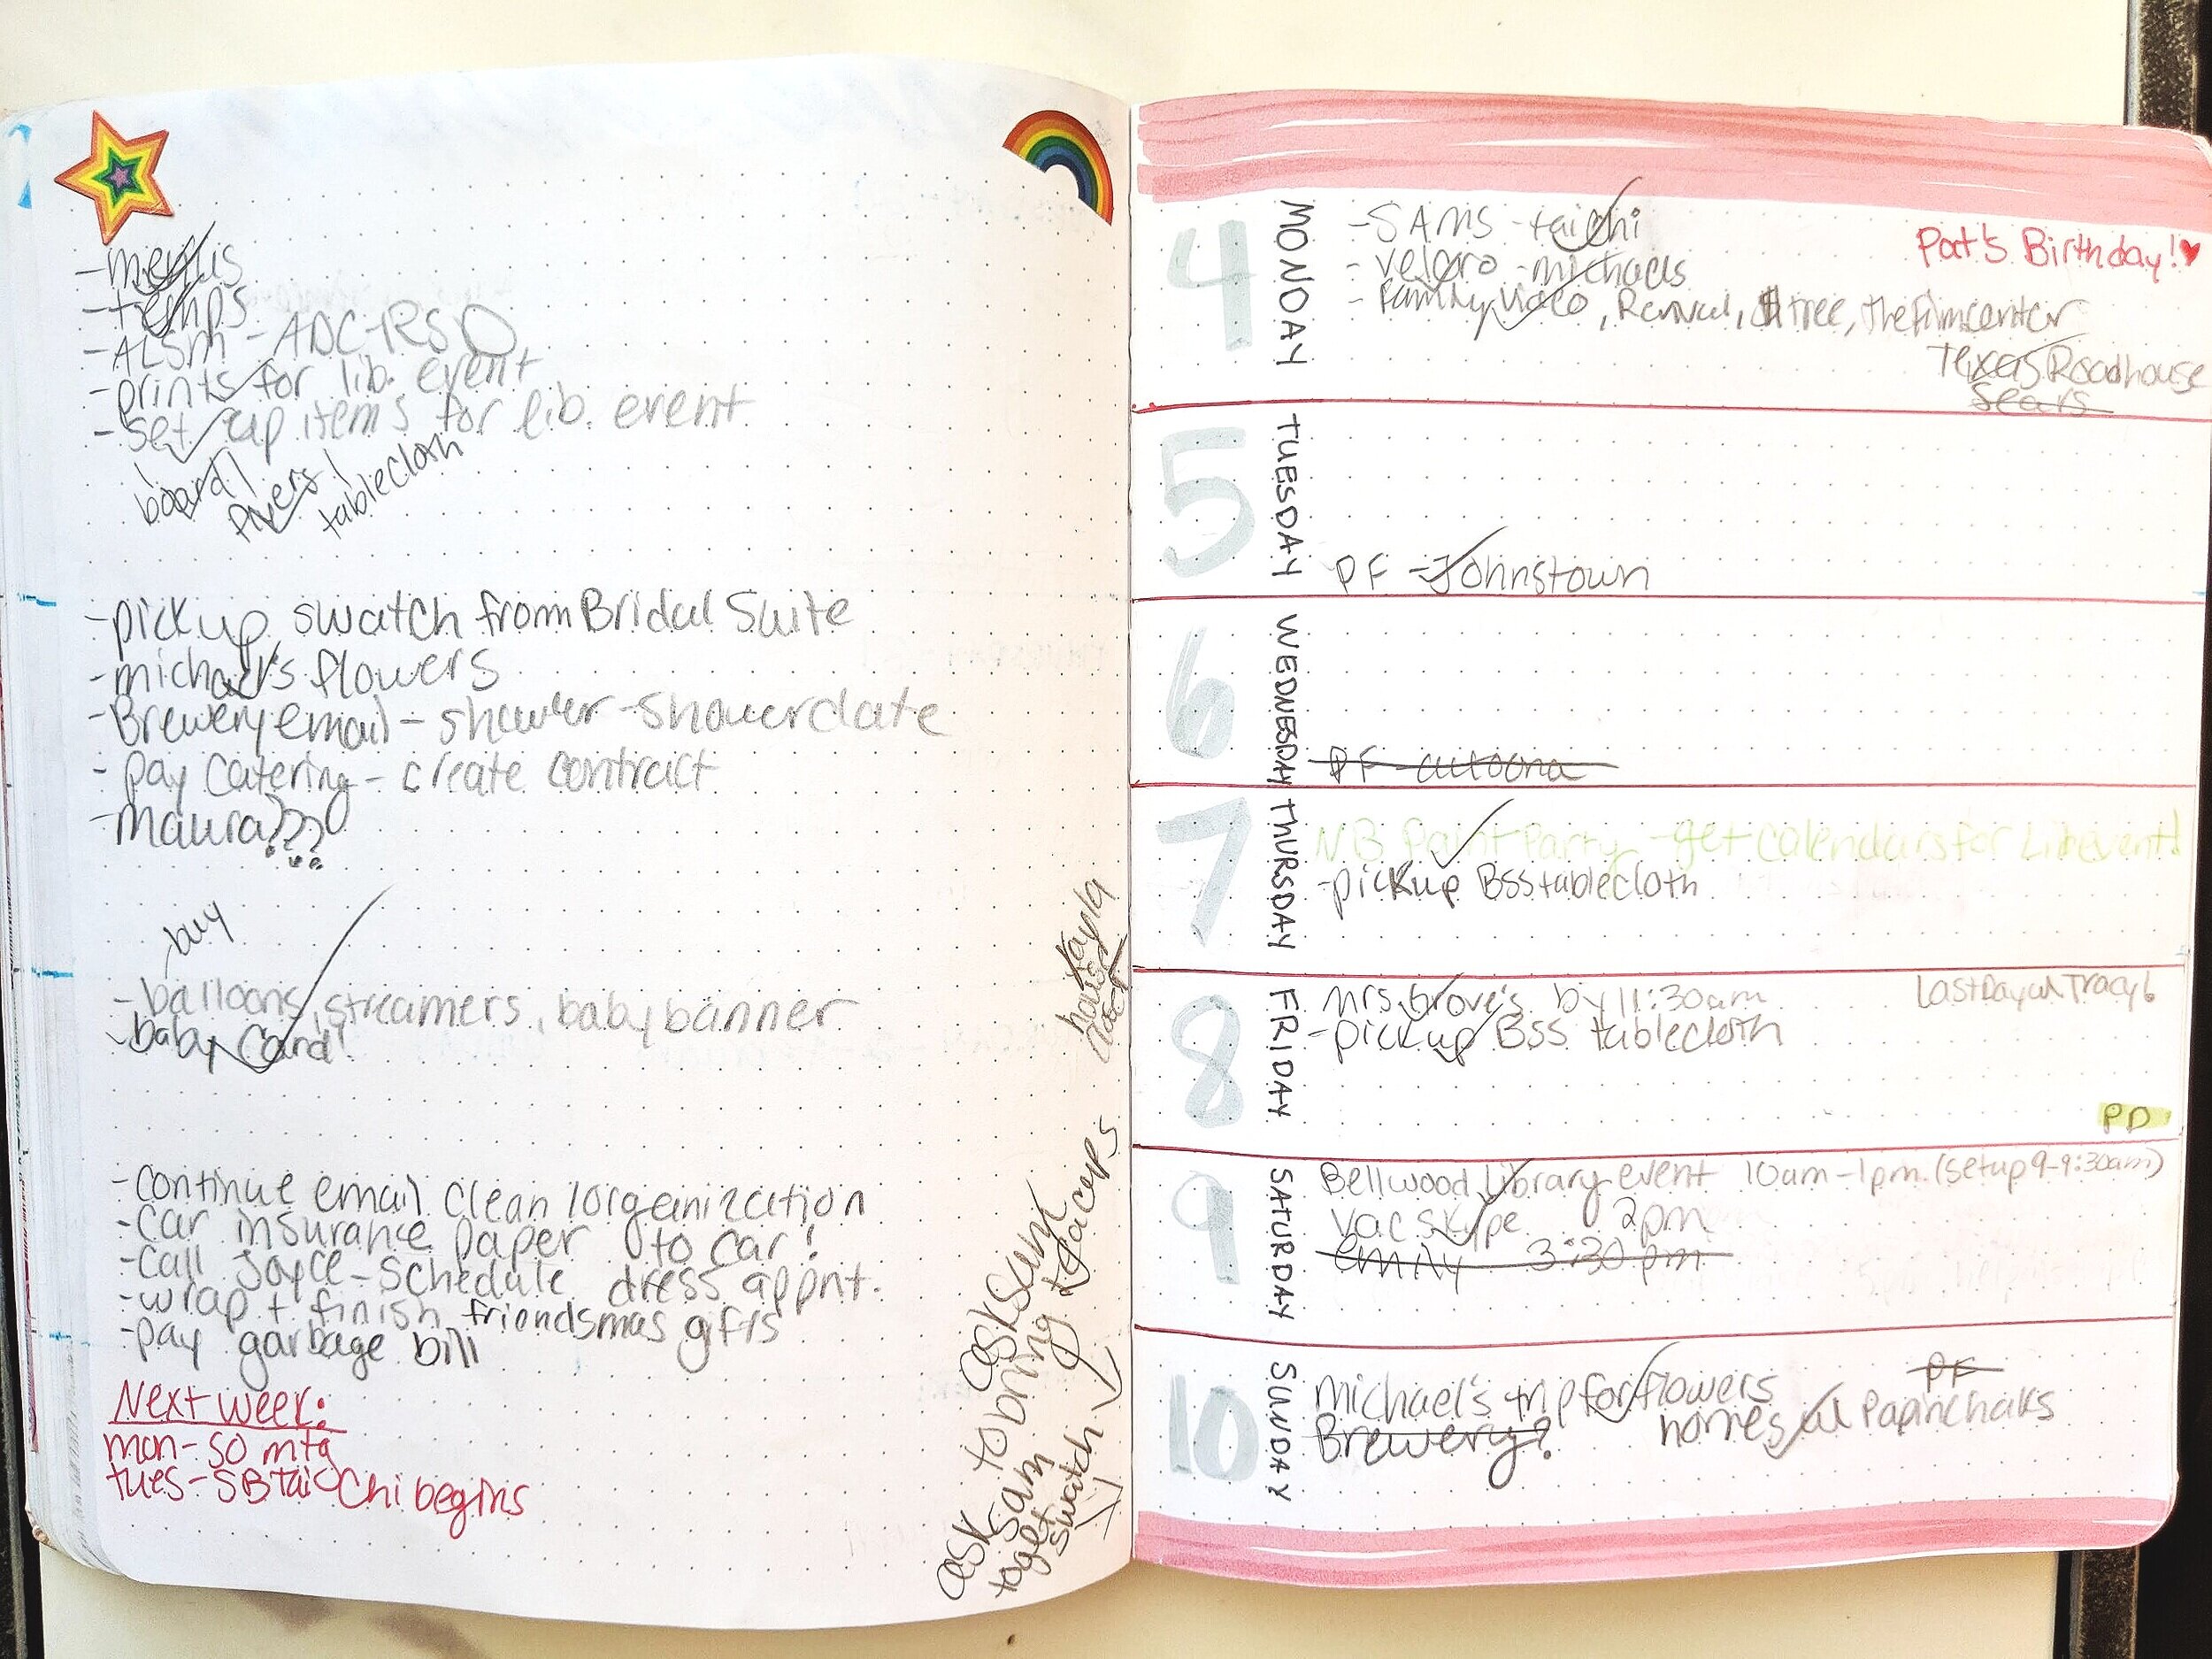 - menus
- temps
- ALSM - ADC-RSO
- prints for lib. event
- Set up items for lib. event
board!
flyers!
tablecloth
- pickup swatch from Bridal Suite
- michael's flowers
- Brewery email - shower - shower date
- pay catering - create contract
- Maura???
buy
- balloons, streamers, baby banner
- baby Card!
- continue email clean / organization
- car insurance paper to car!
- call Joyce - schedule dress appnt.
- wrap + finish friendsmas gifts
- pay garbage bill
Next week:
mon - SO mtg
tues - SB Tai Chi begins
Kayla
house
ask Sam
to bring teacups
ask Sam
to get
swatch
4 MONDAY
- SAMS - tai chi
- velcro - michaels
- Family video, Revival, $ tree, the film center
Texas Roadhouse
Sears
Pat's Birthday!
5 TUESDAY
PF - Johnstown
6 WEDNESDAY
PF - altoona
7 THURSDAY
NB Paint Party - get calendars for Lib event!
- pickup BSS tablecloth
8 FRIDAY
Mrs. Grove's by 11:30am
Last Day w/ Tracy
- pickup BSS tablecloth
PD
9 SATURDAY
Bellwood Library event 10am - 1pm. (setup 9-9:30am)
vac skype 2pm
emily 3:30 pm
10 SUNDAY
PF
Michael's trip for flowers
Brewery?
homes w/ Papinchaks